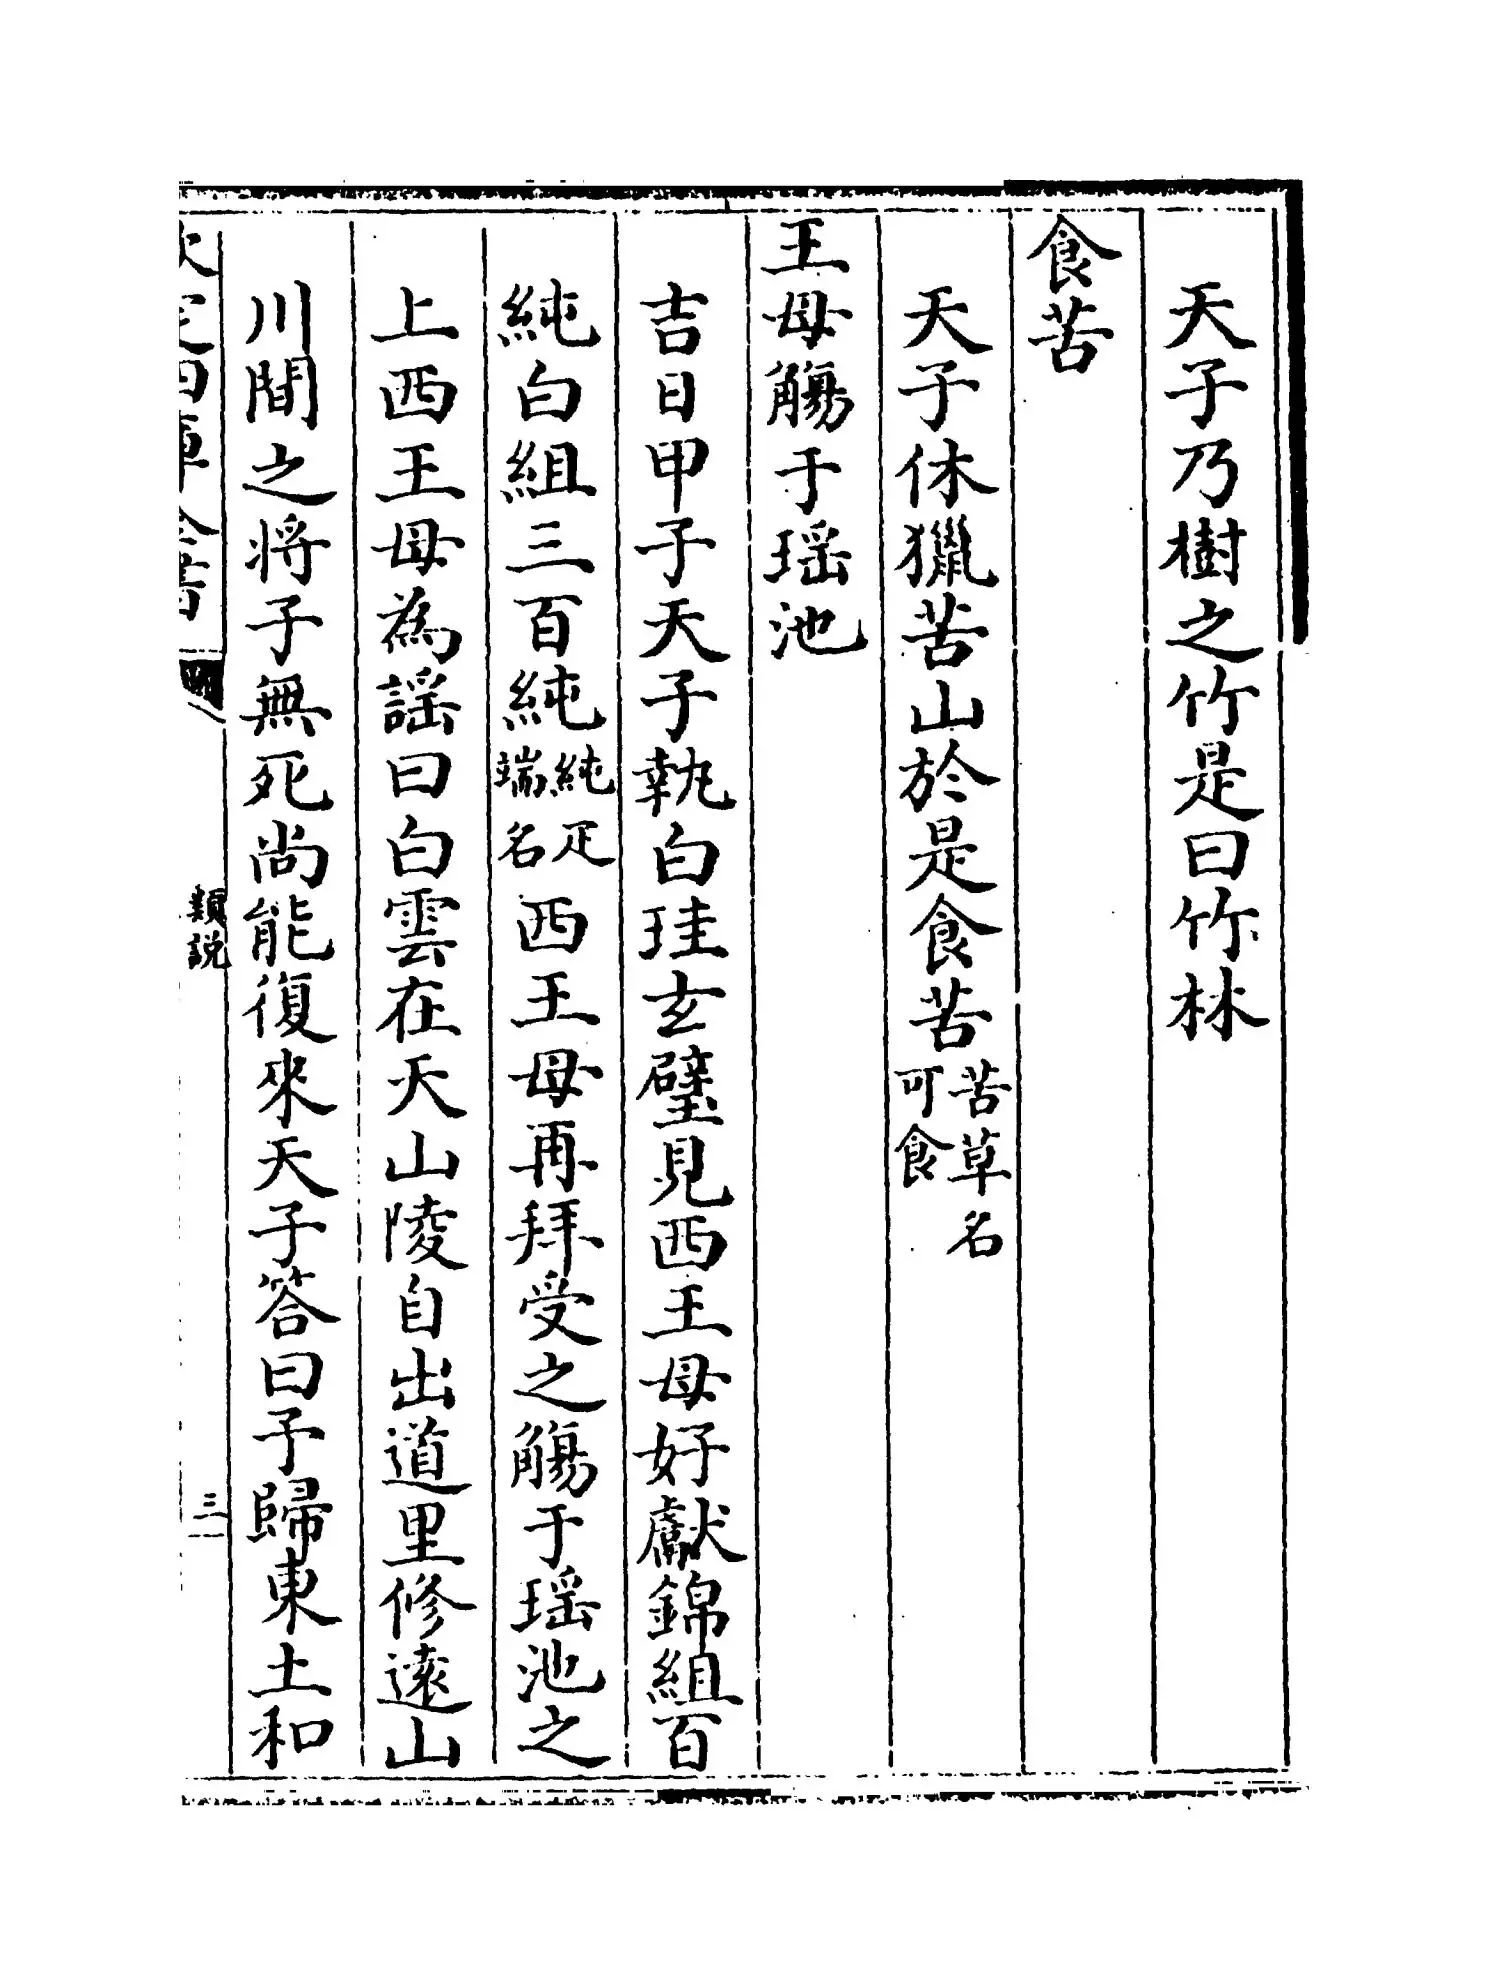 天子乃樹之竹是曰竹林
食苦
天子休獵苦山於是食苦苦草名可食
王母觴于瑶池
吉日甲子天子執白珪玄璧見西王母好獻錦組百
純白組三百純純疋端名西王母再拜受之觴于瑶池之
上西王母為謡曰白雲在天山陵自出道里修逺山
川間之将子無死尚能復來天子答曰予歸東土和
欽定四庫全書
類説
三